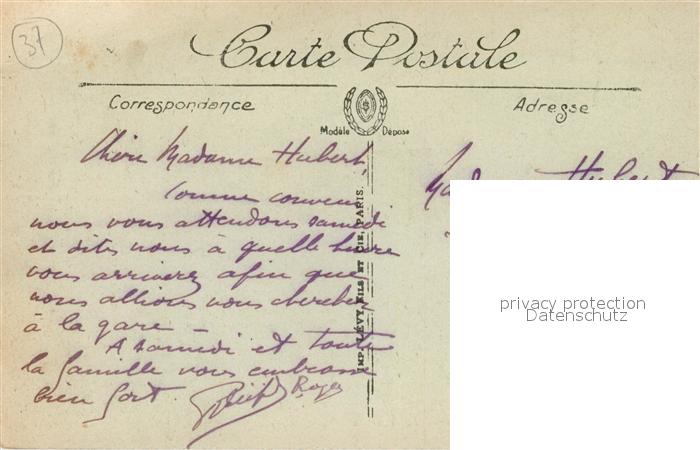 37
Carte Postale
Correspondance
Adresse
Modèle Déposé
Chère Madame Hubert,
Madame Hubert
Comme convenu
nous vous attendons samedi
et dites nous à quelle heure
vous arriverez afin que
nous allions vous chercher
à la gare -
A samedi et toute
la famille vous embrasse
bien fort.
Roger
IMP. LÉVY FILS ET CIE, PARIS.
privacy protection
Datenschutz